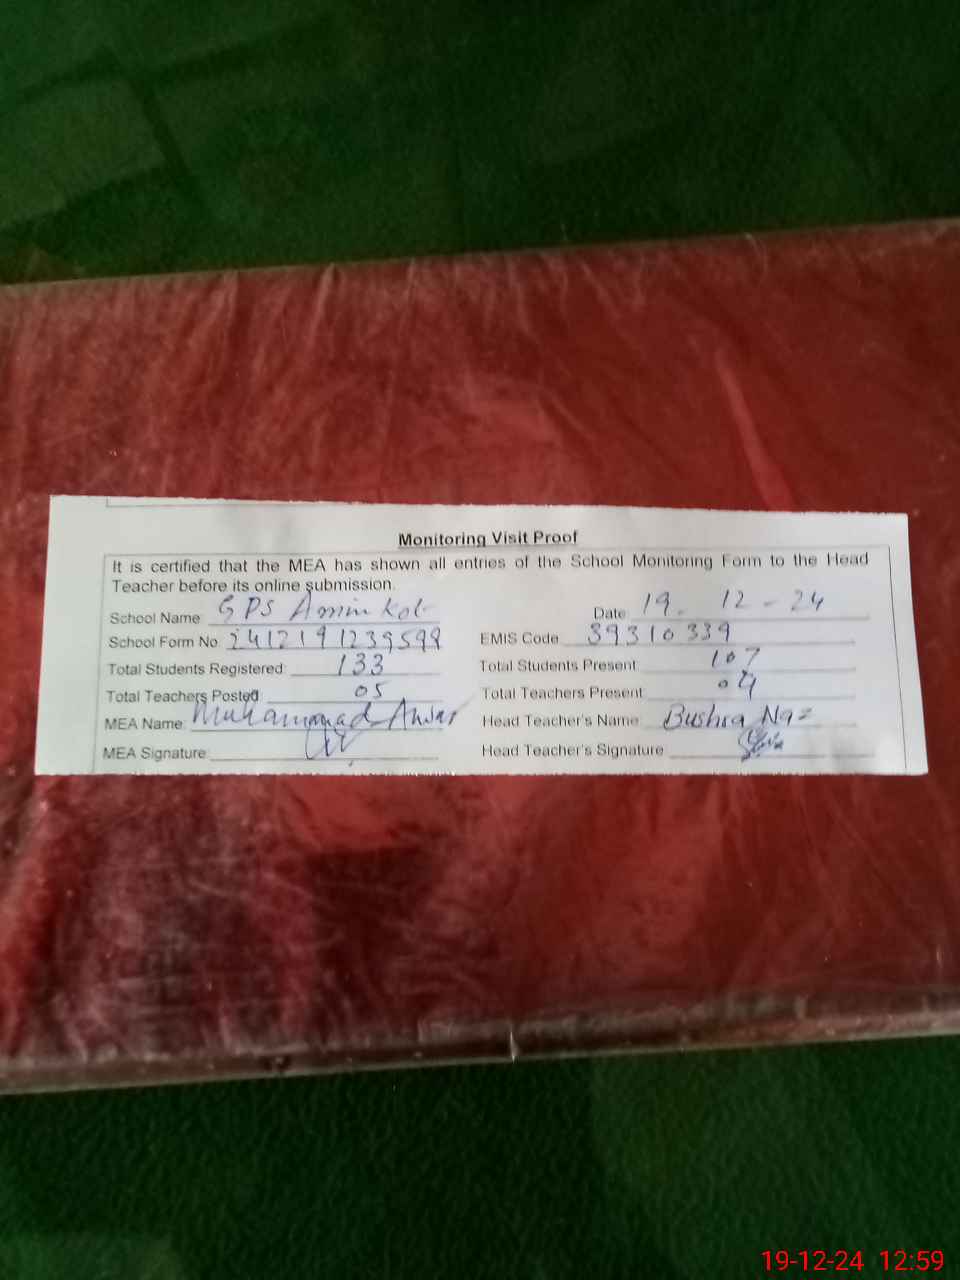 Monitoring Visit Proof
It is certified that the MEA has shown all entries of the School Monitoring Form to the Head
Teacher before its online submission.
School Name GPS Amin Kot Date 19 - 12 - 24
School Form No 241219123959 EMIS Code 39310339
Total Students Registered: 133 Total Students Present 107
Total Teachers Posted 05 Total Teachers Present 04
MEA Name: Muhammad Anwar Head Teacher's Name Bushra Naz
MEA Signature: Head Teacher's Signature
19-12-24 12:59